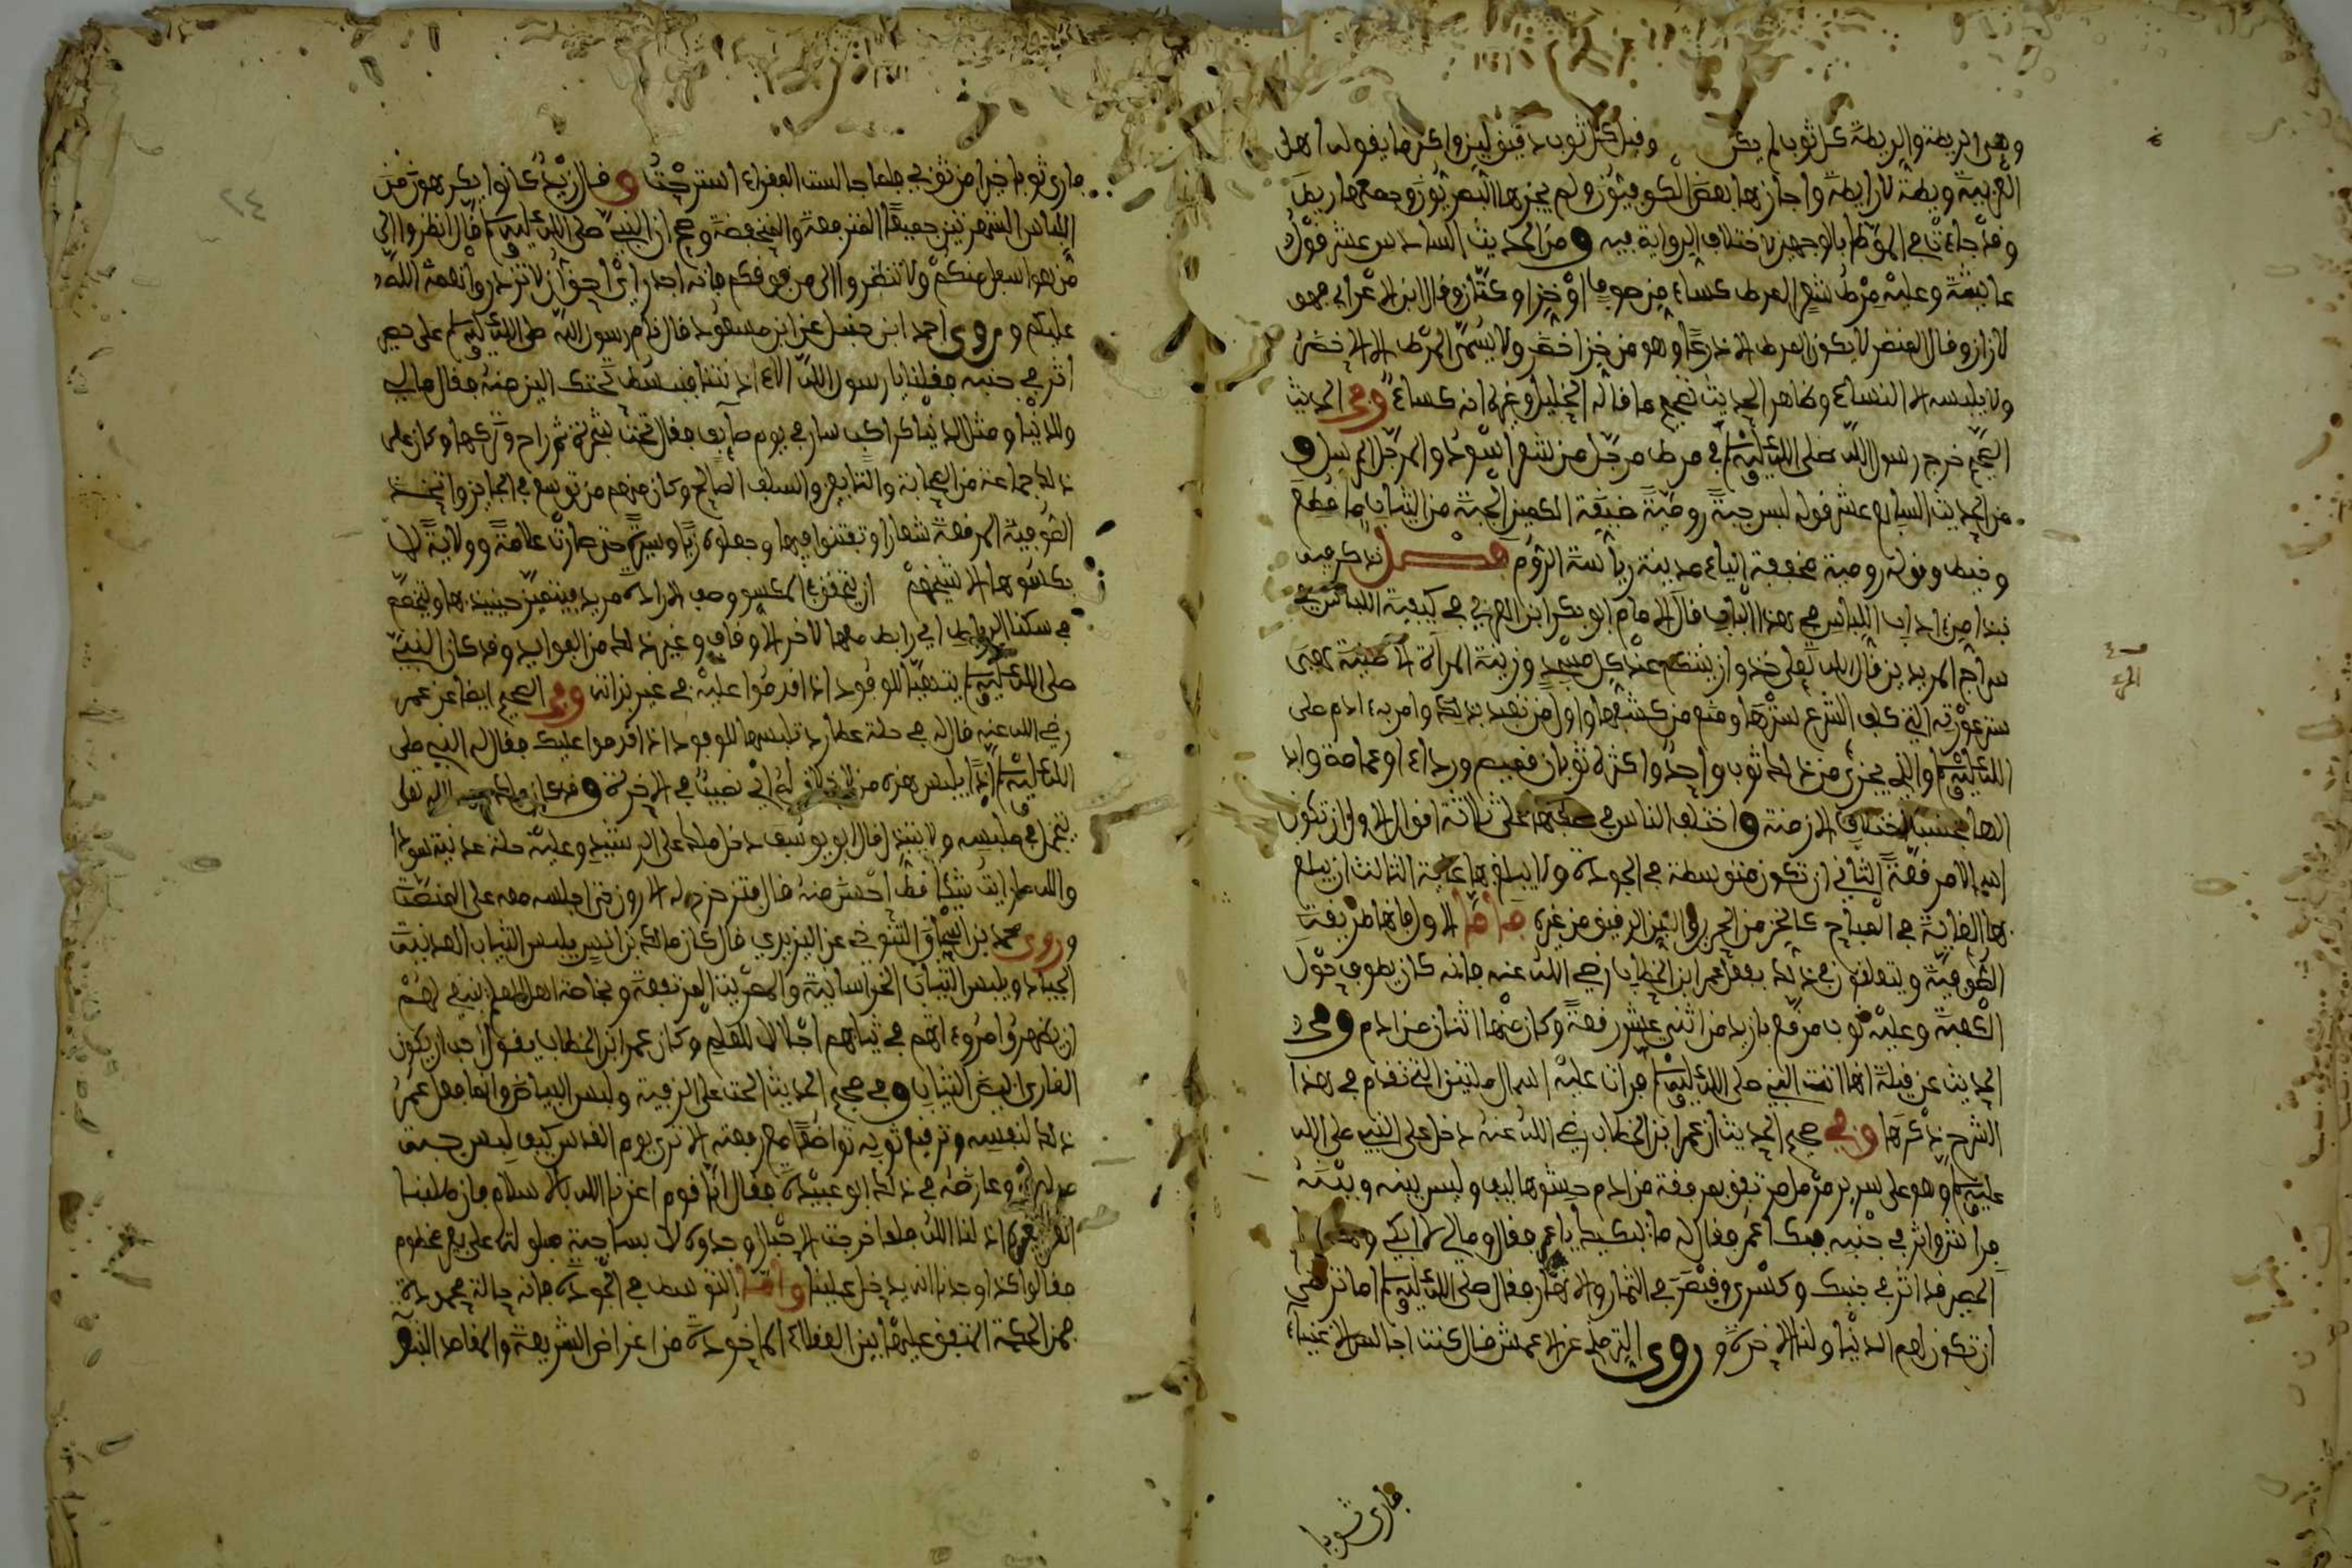 وهي الريطة والريطة كل ثوب لم يكن وقيل كل ثوب دقيق لين واكثر ما يقوله اهل
العربية ريطة لا رايطة واجازها بعض الكوفيون ولم يجزها البصريون وجمعها ريط
وقد جاءتا في الموطإ بالوجهين لاختلاف الرواية فيه ومن الحديث السادس عشر قوله
عايشة وعليه مرط شعر المرط كساء من صوف او خز او كتان وقال ابن الاعرابي هو
لازار وقال النضر لا يكون المرط الا درعا وهو من خز اخضر ولا يسمى المرط الا الاخضر
ولا يلبسه الا النساء وظاهر الحديث تصحيح ما قاله الخليل وغيره انه كساء وفي الحديث
الصحيح خرج رسول الله صلى الله عليه وسلم في مرط مرجل من شعر اسود والمرجل
من الحديث السابع عشر قوله لبس جبة رومية ضيقة الكمين الجبة من الثياب ما قطع
وخيط وقوله رومية مخففة الياء مدينة رياسة الروم فصل نذكر فيه
نبذا من اداب اللباس في هذا الباب قال الامام ابو بكر ابن العربي في كيفية اللباس في
سراج المريدين قال الله تعلى خذوا زينتكم عند كل مسجد وزينة المرأة الاصلية هي
ستر عورته التي كلف الشرع سترها ومنع من كشفها واول من تعبد بذلك وامر به ادم صلى
الله عليه وسلم والذي يجزئ من ذلك ثوب واحد واكثره ثوبان قميص ورداء او عمامة وازيد
الها بحسب اختلاف الازمنة واختلف الناس في صفتها على ثلاثة اقوال الاول ان تكون
اسمالا مرقعة الثاني ان تكون متوسطة في الجودة ولا يبلغ بها غاية الثالث ان يبلغ
بها الغاية في المباح كالخز من الحرير واللين الرقيق من غيره فاما الاول فانها طريقة
الصوفية ويتعلقون في ذلك بفعل عمر ابن الخطاب رضي الله عنه فانه كان يطوف حول
الكعبة وعليه ثوب مرقع بازيد من اثني عشر رقعة وكان منها اثنان من ادم وفي
الحديث عن قيلة انها اتت النبي صلى الله عليه وسلم فرات عليه اسمال مليتين التي تقدم في هذا
الشرح ذكرها وفي صحيح الحديث ان عمر ابن الخطاب رضي الله عنه دخل على النبي صلى الله
عليه وسلم وهو على سرير مرمل مرتفق بمرفقة من ادم حشوها ليف وليس بينه وبينه
فراش واثر في جنبه فبكا عمر فقال له ما يبكيك يا عمر فقال ومالي لا ابكي وهذا
الحصير قد اثر في جنبك وكسرى وقيصر في الثمار والانهار فقال صلى الله عليه وسلم اما ترضى
ان تكون لهم الدنيا ولنا الاخرة وروى الترمذي عن الاعمش قال كنت اجالس الاغنياء
فارى ثوبا
فارى ثوبا خيرا من ثوبي فلما جالست الفقراء استرحت وقال زيد كانوا يكرهون من
اللباس الشهرتين جميعا المرتفعة والمنخفضة وصح ان النبي صلى الله عليه وسلم قال انظروا الى
من هو اسفل منكم ولا تنظروا الى من فوقكم فانه اجدر اي احق ان لا تزدروا نعمة الله
عليكم وروى احمد ابن حنبل عن ابن مسعود قال نام رسول الله صلى الله عليه وسلم على حصير
اثر في جنبه فقلنا يا رسول الله الا اذنتنا فنبسط تحتك الين منه فقال مالي
وللدنيا ومثل الدنيا كراكب سار في يوم صايف فقال تحت شجرة ثم راح وتركها وكان على
ذلك جماعة من الصحابة والتابعين والسلف الصالح وكان منهم من توسع في الجايز واتخذت
الصوفية المرقعة شعارا وتفننوا فيها وجعلوه زيا وسيرة حتى صارت علامة وولاية لا
يكسوها الا شيخهم ان يتحقق في المكسو وصف الارادة مريد فيتعين حينيذ بها ويختص
في سكنا الرباط اي رابط ملها لاخر الاوقاف وغير ذلك من الفوايد وقد كان النبي
صلى الله عليه وسلم يتهيأ للوفود اذا قدموا عليه في غير بزاته وفي الصحيح ايضا عن عمر
رضي الله عنه قال له في حلة عطارد تلبسها للوفود اذا قدموا عليك فقال له النبي صلى
الله عليه وسلم انما يلبس هذه من لا خلاق له اي نصيب في الاخرة وقد كان مالك رحمه الله تعلى
يتجمل في ملبسه ولا يتبذل قال ابو يوسف دخل مالك على الرشيد وعليه حلة عدنية سودا
والله ما رايت شيئا قط احسن منه قال فتزحزح له هارون حتى اجلسه معه على المنصة
وروى محمد بن اسحاق التنوخي عن اليزيدي قال كان مالك بن انس يلبس الثياب العدنية
الجياد ويلبس الثياب الخراسانية والمصرية المرتفعة وبخاصة اهل العلم ينبغي لهم
ان يظهروا مروءاتهم في ثيابهم اجلالا للعلم وكان عمر ابن الخطاب يقول احب ان يكون
القارئ ابيض الثياب وفي صحيح الحديث الحث على الزينة ولبس البياض وانما فعل عمر
ذلك لنفسه وترقيع ثوبه تواضعا مع رفعته الا ترى يوم القدس كيف لبس جبة
وعارضه في ذلك ابو عبيدة فقال انا قوم اعزنا الله بالاسلام فان طلبنا
العز بغيره اذلنا الله فلما خرجت الاحبار وجدوه لابسا جبة صوف على بعير مخطوم
فقالوا كذا وجدنا انه يدخل علينا واما التوسط في الجودة فانه حالة محمودة
فمن الحكمة المتفق عليها بين العقلاء الماخوذة من اغراض الشريعة والمقاصد
٢٤